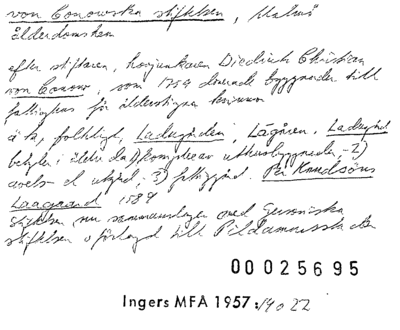 von Conowska stiftelsen, Malmö
Ålderdomshem
efter stiftaren, hovjunkaren Diedrich Christian
von Conow, som 1759 donerade byggnader till
fattighus för ålderstigna kvinnor
folkligt, Ladugården, Lagården, Ladugård
betyder i äldre da 1) komplex av uthusbyggnader, 2)
avels- el utgård, 3) fattiggård. Per Knudsöns
Laagaard 1584
Stiftelsen nu sammanslagen med
stiftelsen o förlagd till Pildammsstaden
00025695
Ingers MFA 1957:14 o 22